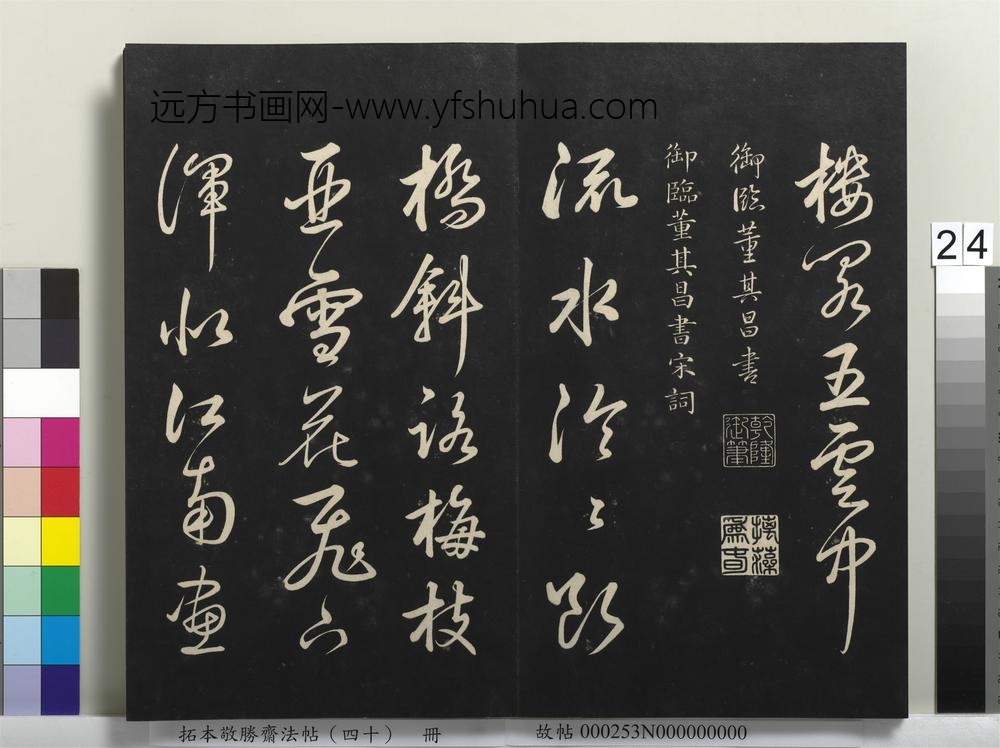 远方书画网-www.yfshuhua.com
樓客五雲中
御臨董其昌書
乾隆御筆
摛藻為春
御臨董其昌書宋詞
流水泠〻斷
橋斜路梅枝
亞雪花飛下
渾似江南畫
24
拓本敬勝齋法帖（四十） 冊
故帖 000253N000000000